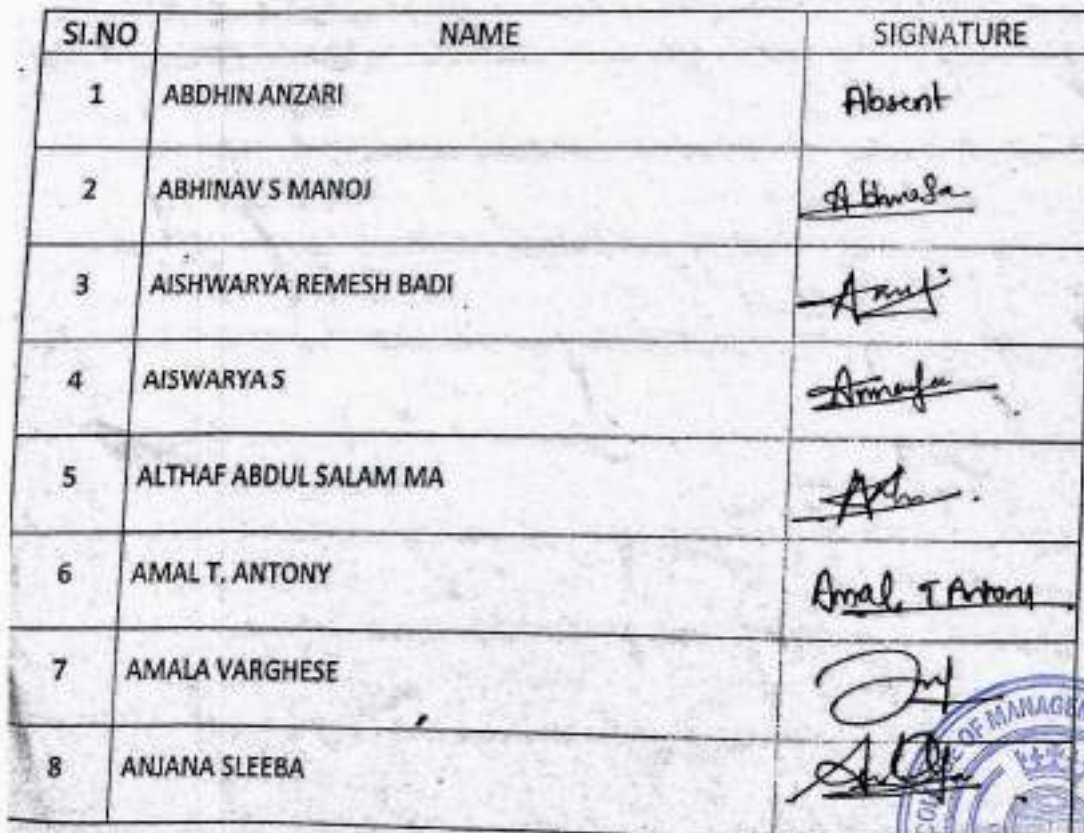 SI.NO NAME SIGNATURE
1 ABDHIN ANZARI Absent
2 ABHINAV S MANOJ
3 AISHWARYA REMESH BADI
4 AISWARYA S
5 ALTHAF ABDUL SALAM MA
6 AMAL T. ANTONY Amal T Antony
7 AMALA VARGHESE
8 ANJANA SLEEBA
OF MANAGE